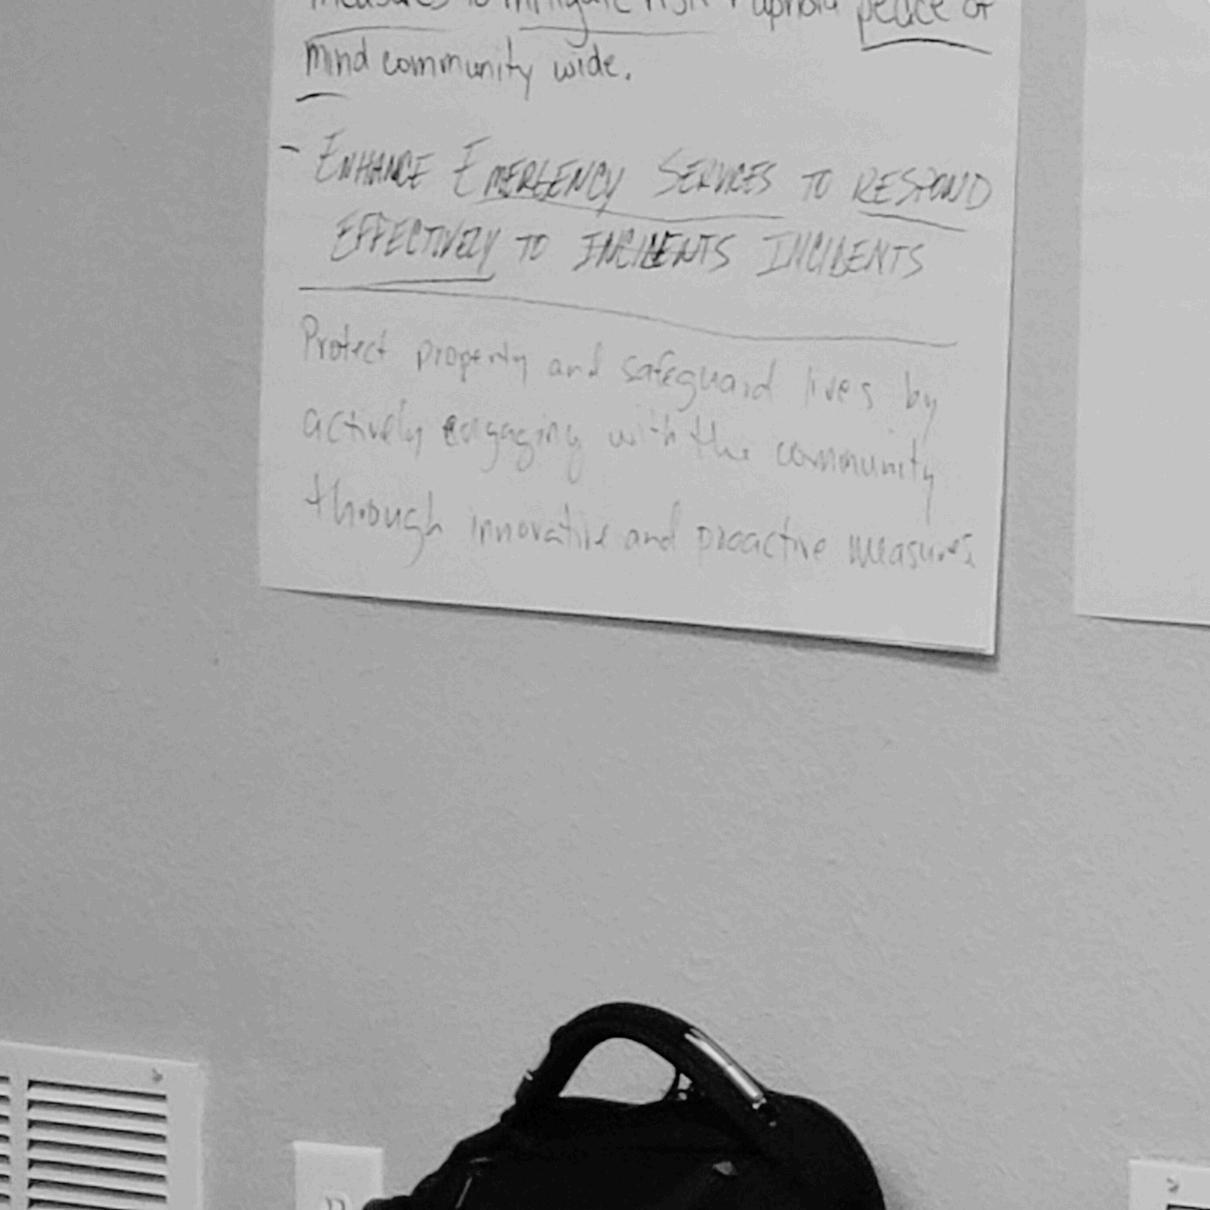 measures to mitigate risk + uphold peace of
mind community wide.
- ENHANCE EMERGENCY SERVICES TO RESPOND
EFFECTIVELY TO INCIDENTS INCIDENTS
Protect property and safeguard lives by
actively engaging with the community
through innovative and proactive measures.